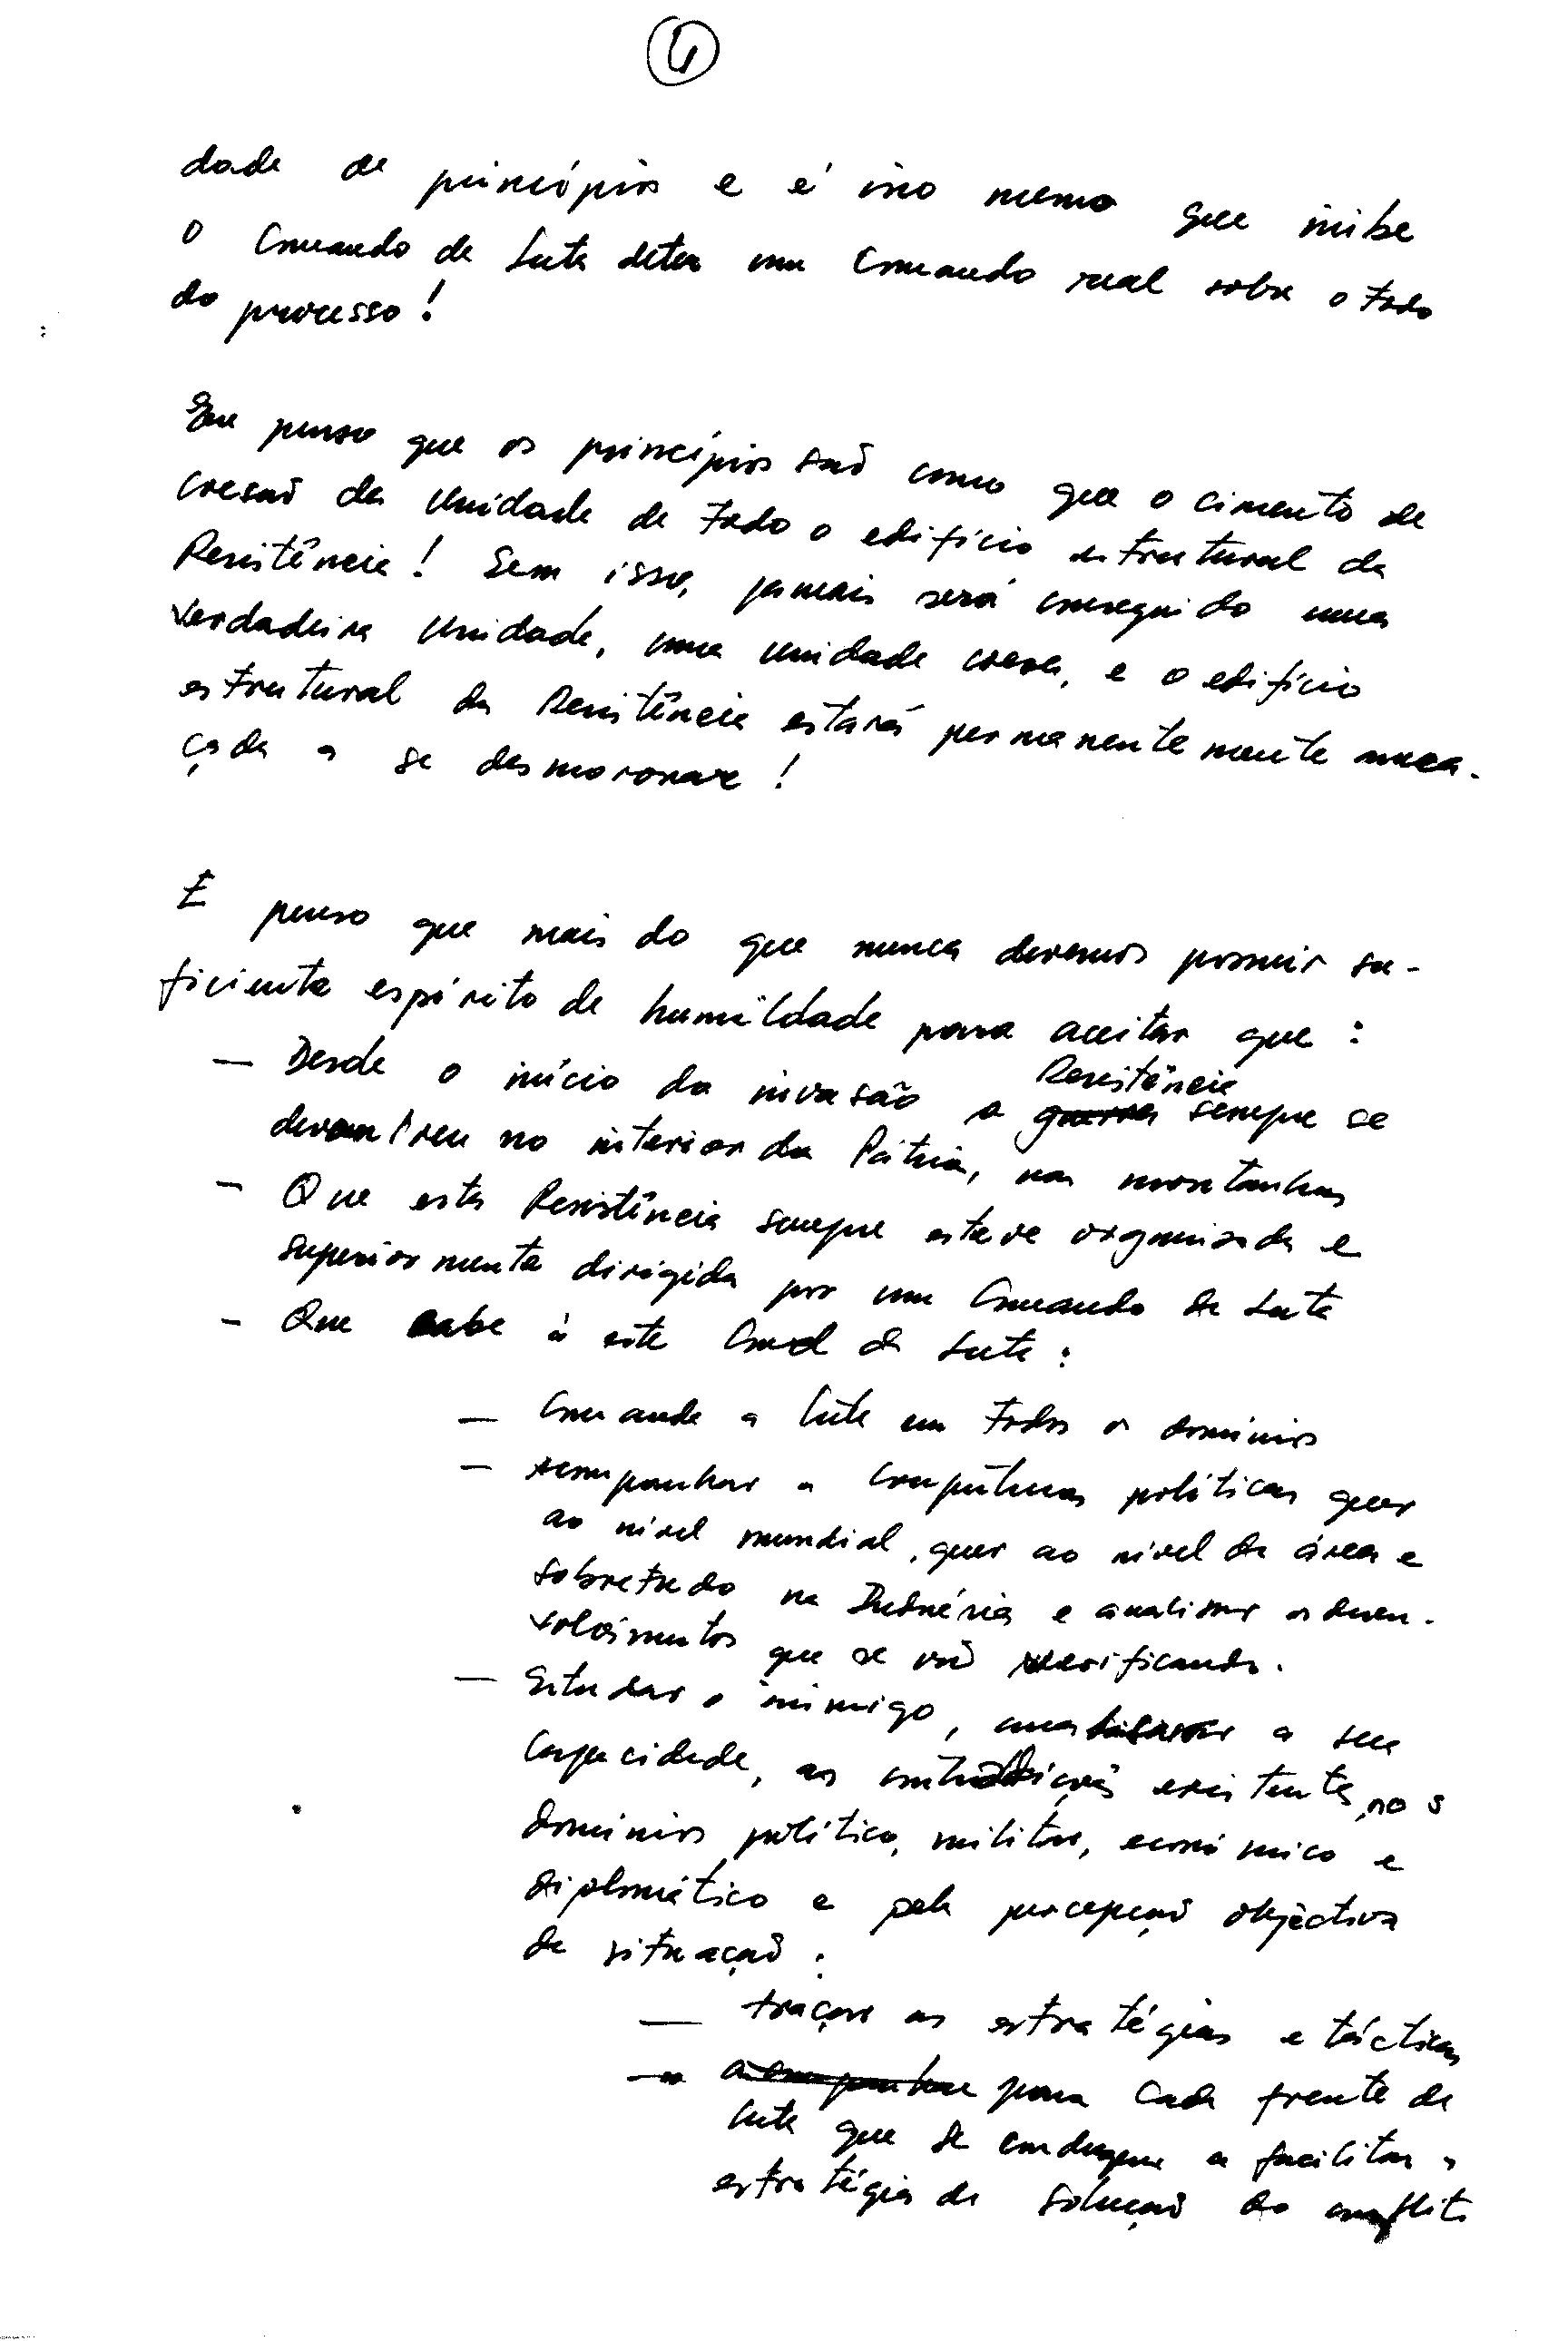 4
dade de princípios e é isso mesmo que inibe
o Comando da Luta deter um Comando real sobre o todo
do processo!
Eu penso que os princípios são como que o cimento de
coesão da unidade de todo o edifício estrutural da
Resistência! Sem isso, jamais será conseguido uma
verdadeira unidade, uma unidade coesa, e o edifício
estrutural da Resistência estará permanentemente amea-
çada a se desmoronar!
E penso que mais do que nunca devemos possuir su-
ficiente espírito de humildade para aceitar que:
— Desde o início da invasão a Resistência sempre se
desenvolveu no interior da Pátria, nas montanhas
- Que esta Resistência sempre esteve organizada e
superiormente dirigida por um Comando da Luta
- Que cabe à este Cmd da Luta:
— Comandar a luta em todos os domínios
— acompanhar as conjunturas políticas quer
ao nível mundial, quer ao nível da área e
sobretudo na Indonésia e analisar os desen-
volvimentos que se vão verificando.
— Estudar o inimigo, analisar a sua
capacidade, as contradições existentes nos
domínios político, militar, económico e
diplomático e pela percepção objectiva
da situação:
— traçar as estratégias e tácticas
para cada frente da
luta que se conduzam a facilitar a
estratégia de solução do conflito